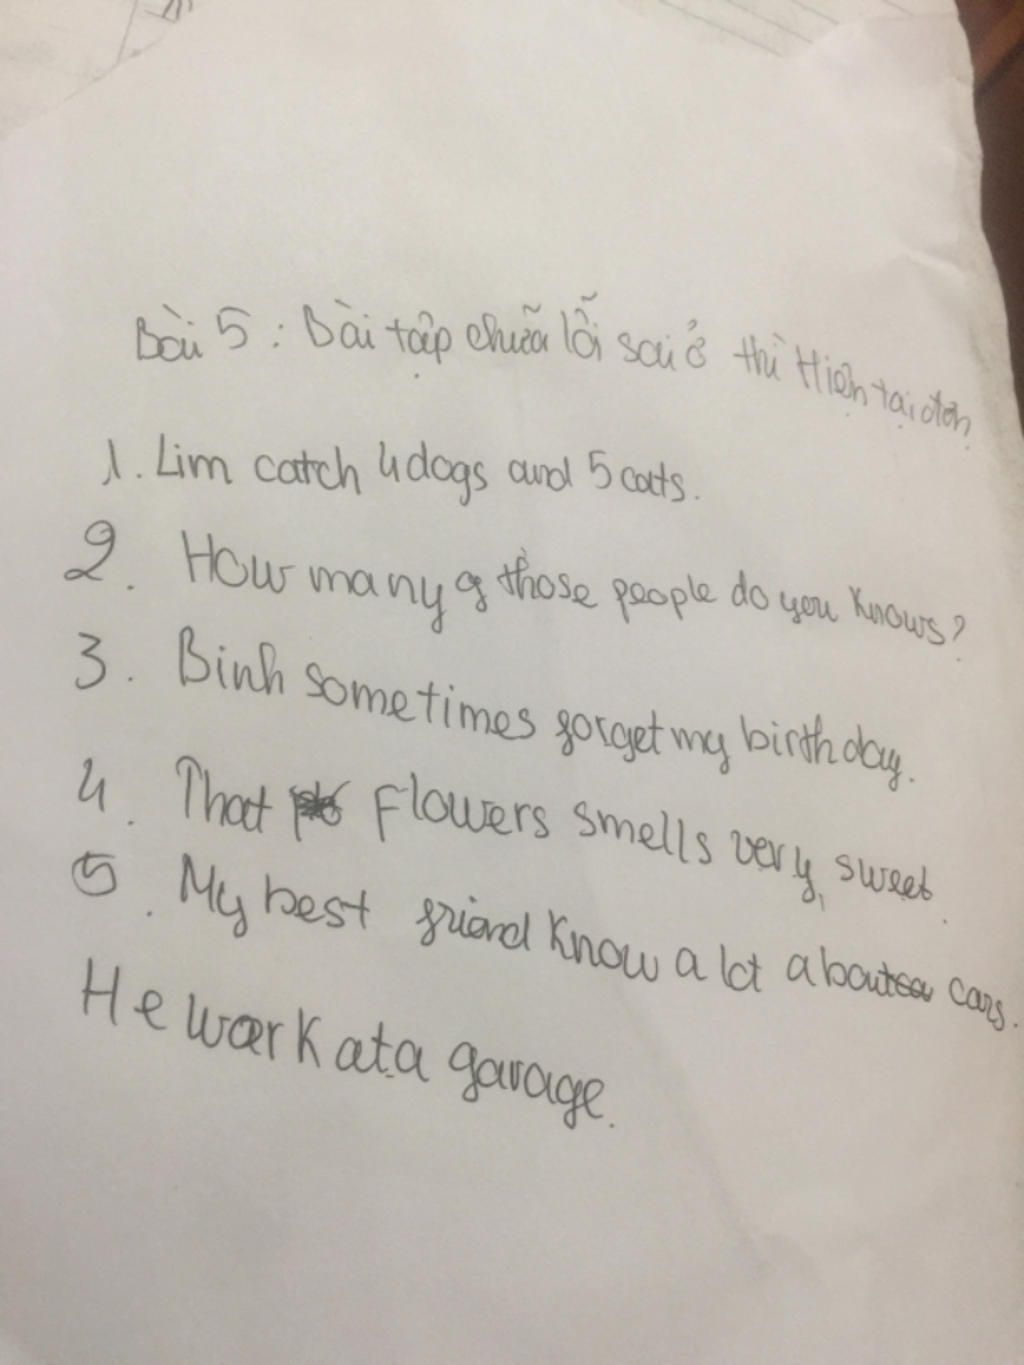 Bài 5 : Bài tập chữa lỗi sai ở thì Hiện tại đơn
1. Lim catch 4 dogs and 5 cats.
2. How many of those people do you knows?
3. Binh sometimes forget my birthday.
4. That flowers smells very sweet.
5. My best friend know a lot about cars.
He work at a garage.